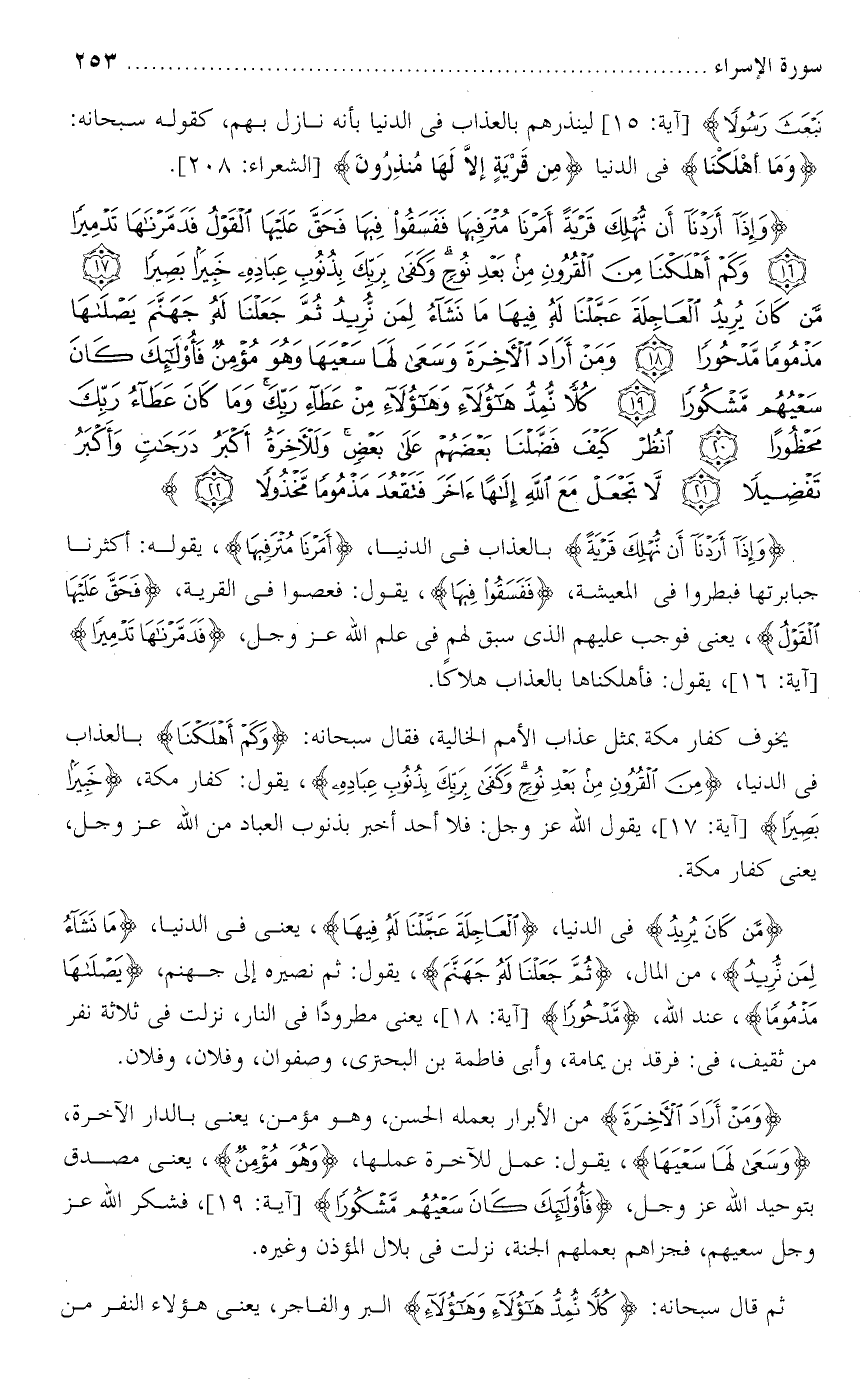 سورة الإسراء ............................................................ ٢٥٣
نَبْعَثَ رَسُولًا﴾ [آية: ١٥] لينذرهم بالعذاب فى الدنيا بأنه نازل بهم، كقوله سبحانه:
﴿وَمَا أَهْلَكْنَا﴾ فى الدنيا ﴿مِن قَرْيَةٍ إلاَّ لَهَا مُنذِرُونَ﴾ [الشعراء: ٢٠٨].
﴿وَإِذَآ أَرَدْنَآ أَن نُّهْلِكَ قَرْيَةً أَمَرْنَا مُتْرَفِيهَا فَفَسَقُوا۟ فِيهَا فَحَقَّ عَلَيْهَا ٱلْقَوْلُ فَدَمَّرْنَـٰهَا تَدْمِيرًا
﴿١٦﴾ وَكَمْ أَهْلَكْنَا مِنَ ٱلْقُرُونِ مِنۢ بَعْدِ نُوحٍ ۗ وَكَفَىٰ بِرَبِّكَ بِذُنُوبِ عِبَادِهِۦ خَبِيرًۢا بَصِيرًا ﴿١٧﴾
مَّن كَانَ يُرِيدُ ٱلْعَاجِلَةَ عَجَّلْنَا لَهُۥ فِيهَا مَا نَشَآءُ لِمَن نُّرِيدُ ثُمَّ جَعَلْنَا لَهُۥ جَهَنَّمَ يَصْلَىٰهَا
مَذْمُومًا مَّدْحُورًا ﴿١٨﴾ وَمَنْ أَرَادَ ٱلْـَٔاخِرَةَ وَسَعَىٰ لَهَا سَعْيَهَا وَهُوَ مُؤْمِنٌ فَأُو۟لَـٰٓئِكَ كَانَ
سَعْيُهُم مَّشْكُورًا ﴿١٩﴾ كُلًّا نُّمِدُّ هَـٰٓؤُلَآءِ وَهَـٰٓؤُلَآءِ مِنْ عَطَآءِ رَبِّكَ ۚ وَمَا كَانَ عَطَآءُ رَبِّكَ
مَحْظُورًا ﴿٢٠﴾ ٱنظُرْ كَيْفَ فَضَّلْنَا بَعْضَهُمْ عَلَىٰ بَعْضٍ ۚ وَلَلْـَٔاخِرَةُ أَكْبَرُ دَرَجَـٰتٍ وَأَكْبَرُ
تَفْضِيلًا ﴿٢١﴾ لَّا تَجْعَلْ مَعَ ٱللَّهِ إِلَـٰهًا ءَاخَرَ فَتَقْعُدَ مَذْمُومًا مَّخْذُولًا ﴿٢٢﴾ ﴾
﴿وَإِذَآ أَرَدْنَآ أَن نُّهْلِكَ قَرْيَةً﴾ بالعذاب فى الدنيا، ﴿أَمَرْنَا مُتْرَفِيهَا﴾، يقوله: أكثرنا
جبابرتها فبطروا فى المعيشة، ﴿فَفَسَقُوا۟ فِيهَا﴾، يقول: فعصوا فى القرية، ﴿فَحَقَّ عَلَيْهَا
ٱلْقَوْلُ﴾، يعنى فوجب عليهم الذى سبق لهم فى علم الله عز وجل، ﴿فَدَمَّرْنَـٰهَا تَدْمِيرًا﴾
[آية: ١٦]، يقول: فأهلكناها بالعذاب هلاكًا.
يخوف كفار مكة بمثل عذاب الأمم الخالية، فقال سبحانه: ﴿وَكَمْ أَهْلَكْنَا﴾ بالعذاب
فى الدنيا، ﴿مِنَ ٱلْقُرُونِ مِنۢ بَعْدِ نُوحٍ ۗ وَكَفَىٰ بِرَبِّكَ بِذُنُوبِ عِبَادِهِۦ﴾، يقول: كفار مكة، ﴿خَبِيرًۢا
بَصِيرًا﴾ [آية: ١٧]، يقول الله عز وجل: فلا أحد أخبر بذنوب العباد من الله عز وجل،
يعنى كفار مكة.
﴿مَّن كَانَ يُرِيدُ﴾ فى الدنيا، ﴿ٱلْعَاجِلَةَ عَجَّلْنَا لَهُۥ فِيهَا﴾، يعنى فى الدنيا، ﴿مَا نَشَآءُ
لِمَن نُّرِيدُ﴾، من المال، ﴿ثُمَّ جَعَلْنَا لَهُۥ جَهَنَّمَ﴾، يقول: ثم نصيره إلى جهنم، ﴿يَصْلَىٰهَا
مَذْمُومًا﴾، عند الله، ﴿مَّدْحُورًا﴾ [آية: ١٨]، يعنى مطرودًا فى النار، نزلت فى ثلاثة نفر
من ثقيف، فى: فرقد بن يمامة، وأبى فاطمة بن البحترى، وصفوان، وفلان، وفلان.
﴿وَمَنْ أَرَادَ ٱلْـَٔاخِرَةَ﴾ من الأبرار بعمله الحسن، وهو مؤمن، يعنى بالدار الآخرة،
﴿وَسَعَىٰ لَهَا سَعْيَهَا﴾، يقول: عمل للآخرة عملها، ﴿وَهُوَ مُؤْمِنٌ﴾، يعنى مصدق
بتوحيد الله عز وجل، ﴿فَأُو۟لَـٰٓئِكَ كَانَ سَعْيُهُم مَّشْكُورًا﴾ [آية: ١٩]، فشكر الله عز
وجل سعيهم، فجزاهم بعملهم الجنة، نزلت فى بلال المؤذن وغيره.
ثم قال سبحانه: ﴿كُلًّا نُّمِدُّ هَـٰٓؤُلَآءِ وَهَـٰٓؤُلَآءِ﴾ البر والفاجر، يعنى هؤلاء النفر من